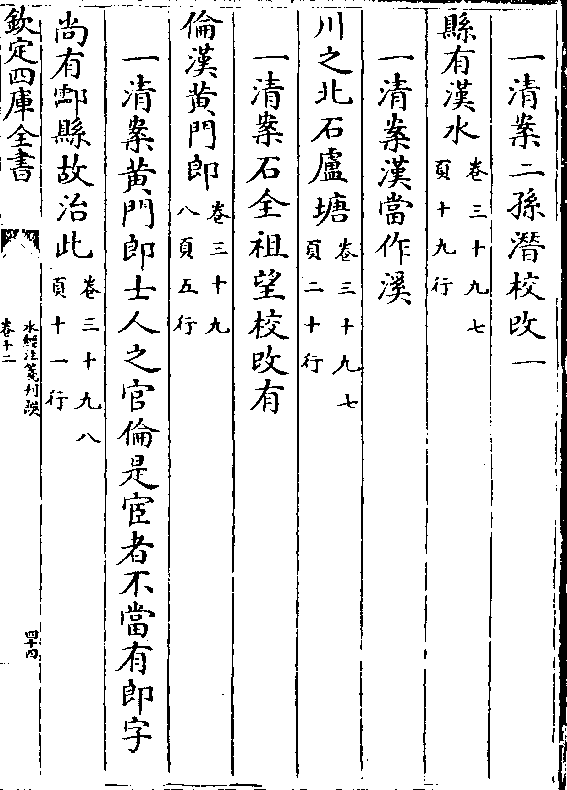 一清案二孫潛校改一
縣有漢水卷三十九七頁十九行
一清案漢當作溪
川之北石廬塘卷三十九七頁二十行
一清案石全祖望校改有
倫漢黄門郎卷三十九八頁五行
一清案黄門郎士人之官倫是宦者不當有郎字
尚有酃縣故治此卷三十九八頁十一行
欽定四庫全書
水經注箋刊誤
卷十二
四十四